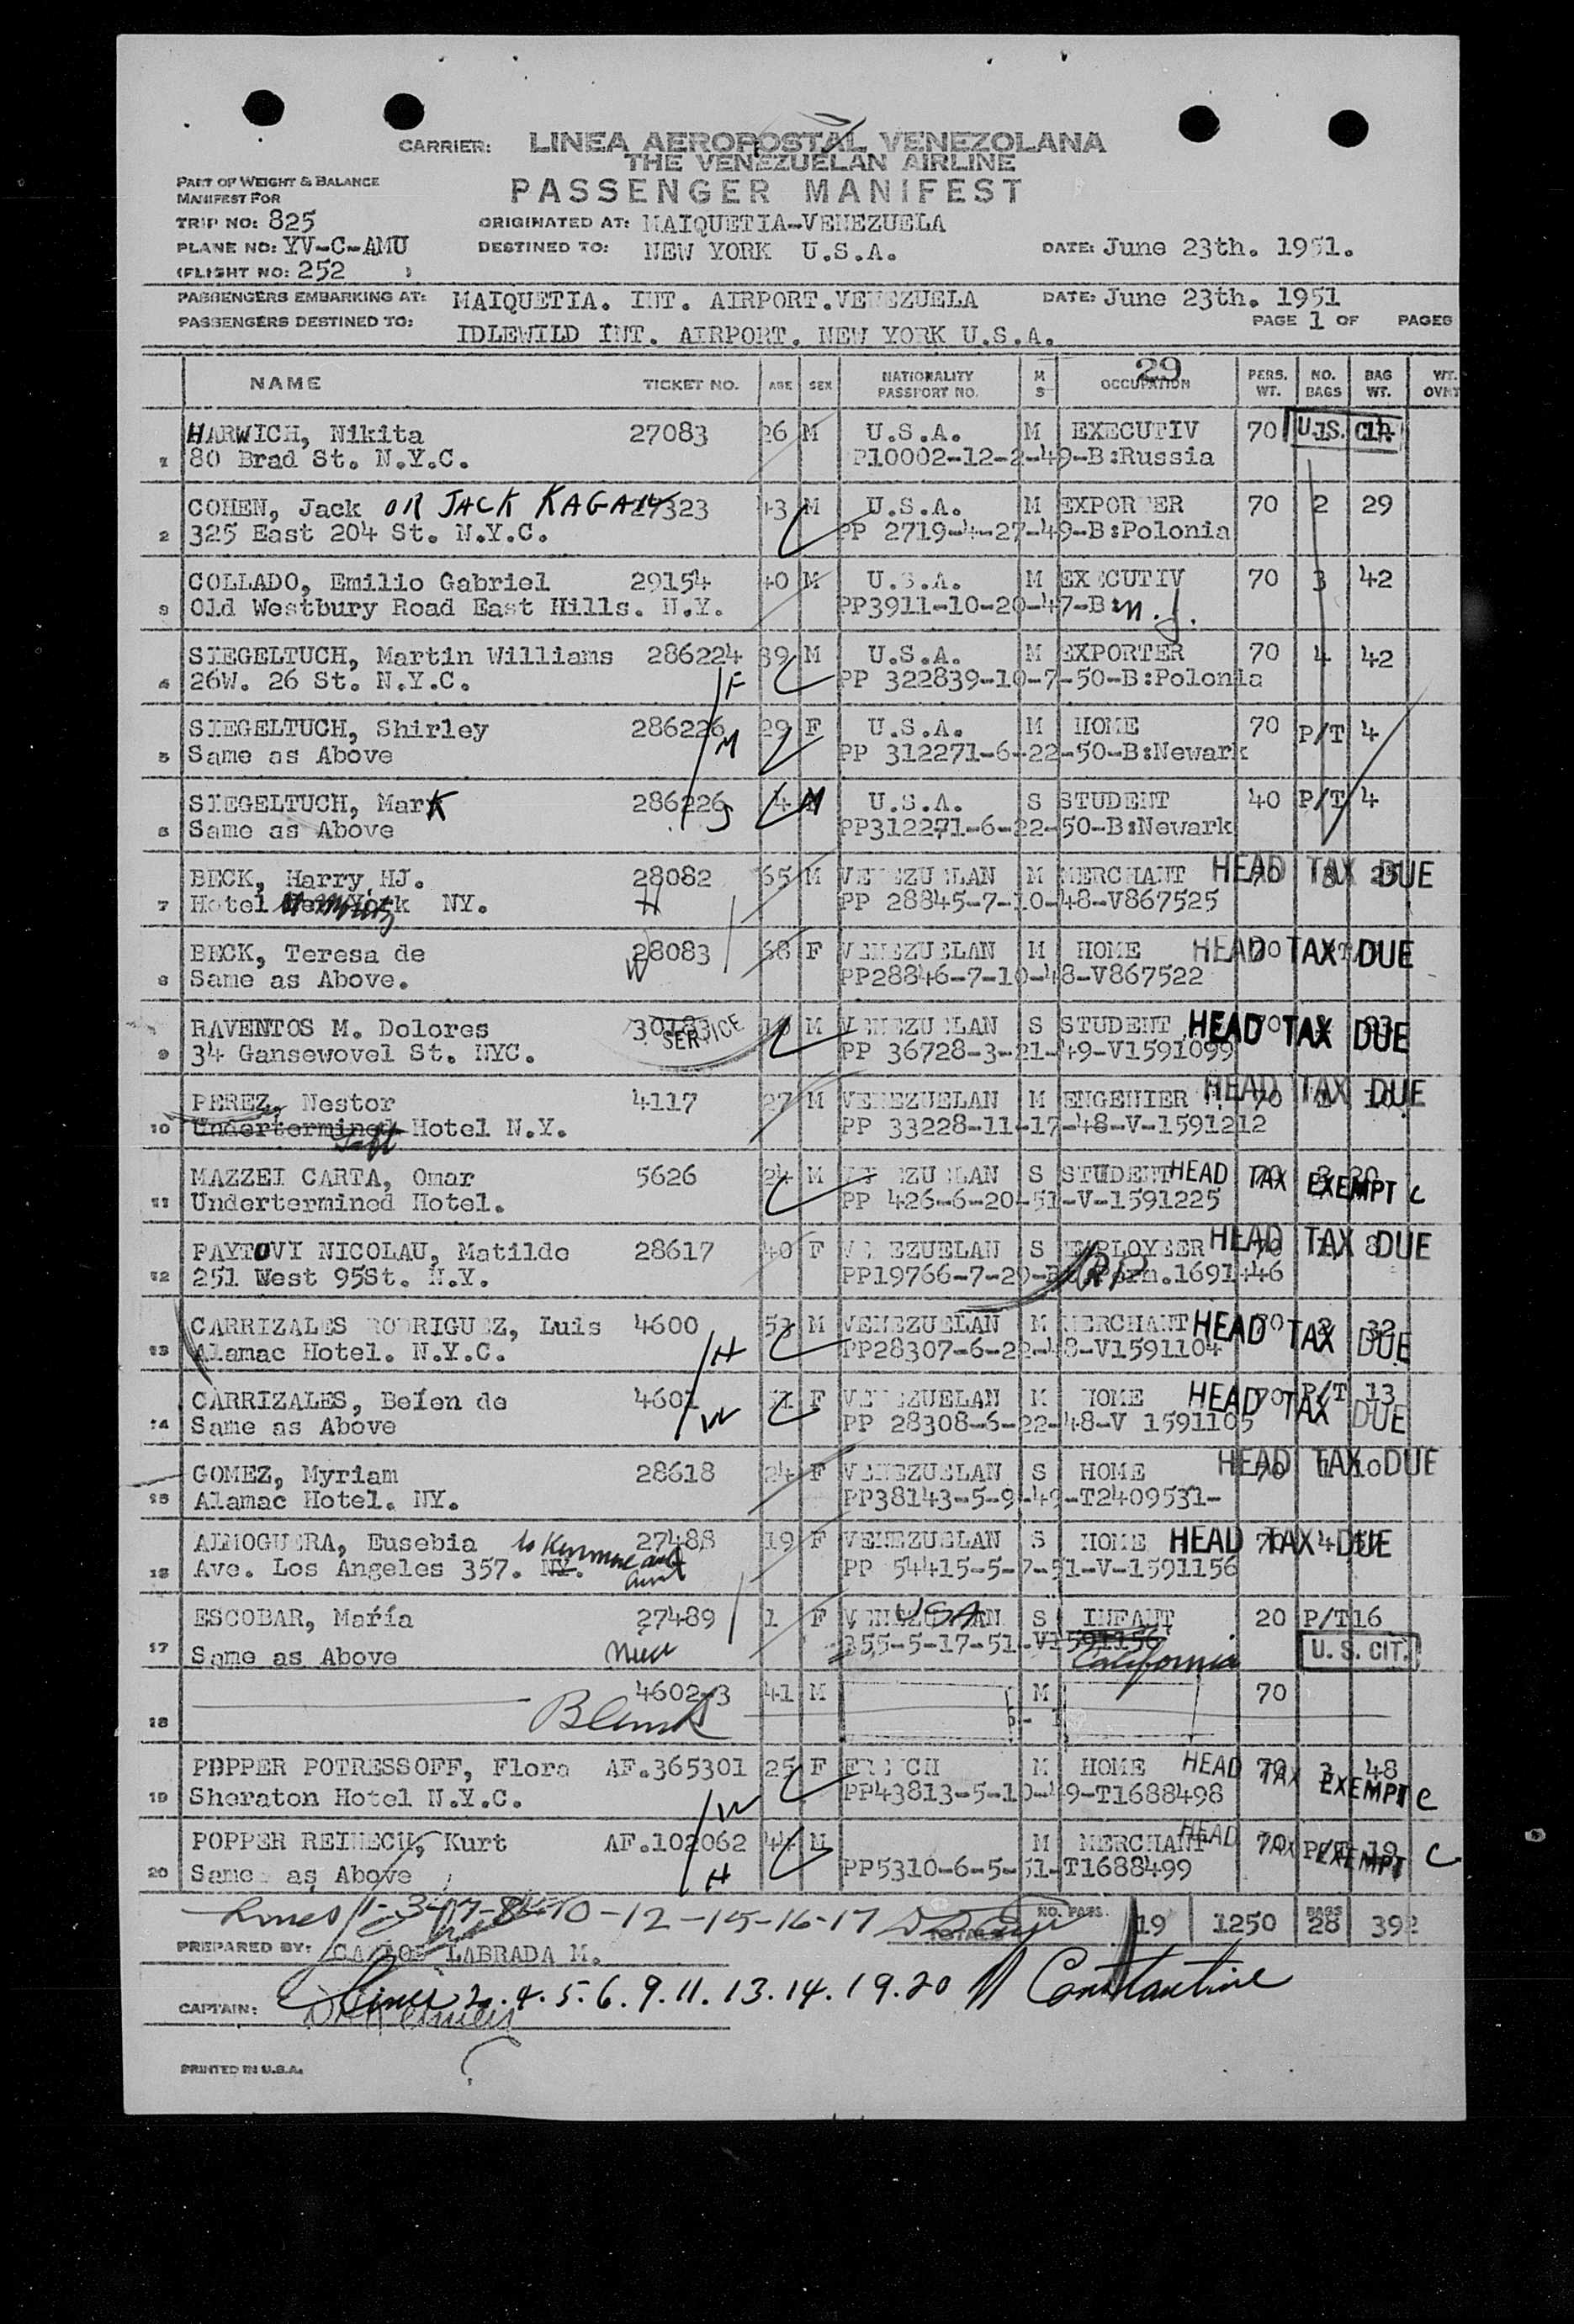 CARRIER: LINEA AEROPOSTAL VENEZOLANA
THE VENEZUELAN AIRLINE
PASSENGER MANIFEST
PART OF WEIGHT & BALANCE
MANIFEST FOR
TRIP NO: 825
ORIGINATED AT: MAIQUETIA-VENEZUELA
PLANE NO: YV-C-AMU
DESTINED TO: NEW YORK U.S.A.
DATE: June 23th. 1951.
(FLIGHT NO: 252 )
PASSENGERS EMBARKING AT: MAIQUETIA. INT. AIRPORT.VENEZUELA DATE: June 23th. 1951
PASSENGERS DESTINED TO: IDLEWILD INT. AIRPORT. NEW YORK U.S.A. PAGE 1 OF PAGES
29
NAME TICKET NO. AGE SEX NATIONALITY PASSPORT NO. M S OCCUPATION PERS. WT. NO. BAGS BAG WT. WT.
HARWICH, Nikita 27083 26 M U.S.A. M EXECUTIV 70 U.S. Cit.
1 80 Brad St. N.Y.C. P10002-12-2-49-B:Russia
COHEN, Jack OR JACK KAGAN 27323 43 M U.S.A. M EXPORTER 70 2 29
2 325 East 204 St. N.Y.C. PP 2719-4-27-49-B:Polonia
COLLADO, Emilio Gabriel 29154 40 M U.S.A. M EXECUTIV 70 3 42
3 Old Westbury Road East Hills. N.Y. PP3911-10-20-47-B: N.J.
SIEGELTUCH, Martin Williams 286224 39 M U.S.A. M EXPORTER 70 4 42
4 26W. 26 St. N.Y.C. F PP 322839-10-7-50-B:Polonia
SIEGELTUCH, Shirley 286226 29 F U.S.A. M HOME 70 P/T 4
5 Same as Above M PP 312271-6-22-50-B:Newark
SIEGELTUCH, Mark 286226 4 M U.S.A. S STUDENT 40 P/T 4
6 Same as Above S PP312271-6-22-50-B:Newark
BECK, Harry HJ. 28082 65 M VENEZUELAN M MERCHANT 70 HEAD TAX DUE
7 Hotel NY. H PP 28845-7-10-48-V867525
BECK, Teresa de 28083 68 F VENEZUELAN M HOME HEAD TAX DUE
8 Same as Above. W PP28846-7-10-48-V867522
RAVENTOS M. Dolores SERVICE M VENEZUELAN S STUDENT 70 HEAD TAX DUE
9 34 Gansewovel St. NYC. PP 36728-3-21-49-V1591099
PEREZ, Nestor 4117 27 M VENEZUELAN M ENGENIER 70 HEAD TAX DUE
10 Undertermined Taft Hotel N.Y. PP 33228-11-17-48-V-1591212
MAZZEI CARTA, Omar 5626 24 M VENEZUELAN S STUDENT HEAD TAX EXEMPT C
11 Undertermined Hotel. PP 426-6-20-51-V-1591225
PAYTOVI NICOLAU, Matilde 28617 40 F VENEZUELAN S EMPLOYEER HEAD TAX DUE
12 251 West 95St. N.Y. PP19766-7-29- Perm.1691446
CARRIZALES RODRIGUEZ, Luis 4600 53 M VENEZUELAN M MERCHANT 70 32 HEAD TAX DUE
13 Alamac Hotel. N.Y.C. H PP28307-6-22-48-V1591104
CARRIZALES, Belen de 4601 F VENEZUELAN M HOME 70 P/T 13 HEAD TAX DUE
14 Same as Above W PP 28308-6-22-48-V 1591105
GOMEZ, Myriam 28618 24 F VENEZUELAN S HOME 70 10 HEAD TAX DUE
15 Alamac Hotel. NY. PP38143-5-9-49-T2409531-
ALMOGUERA, Eusebia 27488 19 F VENEZUELAN S HOME HEAD TAX DUE
16 Ave. Los Angeles 357. NY. PP 54415-5-7-51-V-1591156
ESCOBAR, María 27489 1 F VENEZUELAN USA S INFANT 20 P/T 16
17 Same as Above 355-5-17-51-V1591156 California U. S. CIT.
4602-3 41 M M 70
18 Blank
POPPER POTRESSOFF, Flora AF.365301 25 F FRENCH M HOME 70 3 48 HEAD TAX EXEMPT C
19 Sheraton Hotel N.Y.C. W PP43813-5-10-49-T1688498
POPPER REINECH, Kurt AF.102062 44 M M MERCHANT 70 P/T 19 HEAD TAX EXEMPT C
20 Same as Above H PP5310-6-5-51-T1688499
Lines 1-3-7-8-10-12-15-16-17
NO. PASS. 19 1250 BAGS 28 392
TOTALS
PREPARED BY: CARLOS LABRADA M.
Lines 2.4.5.6.9.11.13.14.19.20 Constantine
CAPTAIN:
PRINTED IN U.S.A.